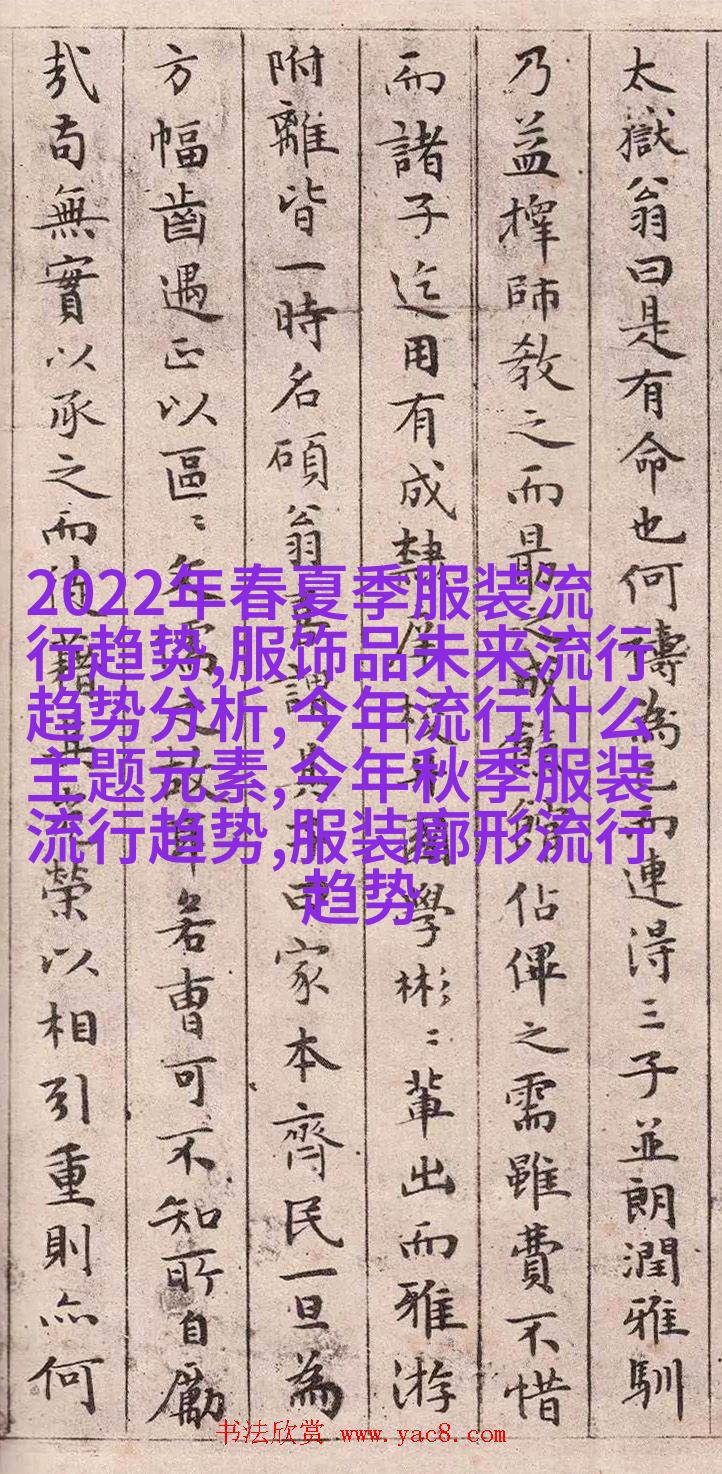 太嶽翁曰是有命也何為已而連淂三子並朗潤雅馴
乃益擇師教之而最館佔俾之需雖費不惜
而諸子迄用有成隸庠校學彬彬輩出而雅游
附離皆一時名碩翁謂其曰家本齊民一旦為
方幅齒遇正以區區故耳若曹可不知所自勵
哉苟無實以承之而榮以相引重則亦何
2022年春夏季服装流
行趋势,服饰品未来流行
趋势分析,今年流行什么
主题元素,今年秋季服装
流行趋势,服装廓形流行
趋势
书法欣赏 www.yac8.com